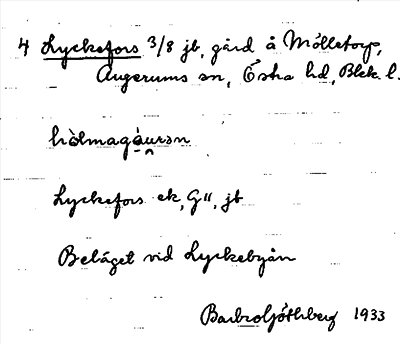 4 Lyckefors 3/8 jb, gård å Mölletorp,
Augerums sn, Östra hd, Blek. l.
hòlmagá̱u̯rən
Lyckefors ek, G", jb
Beläget vid Lyckebyån
Barbro Göthberg 1933